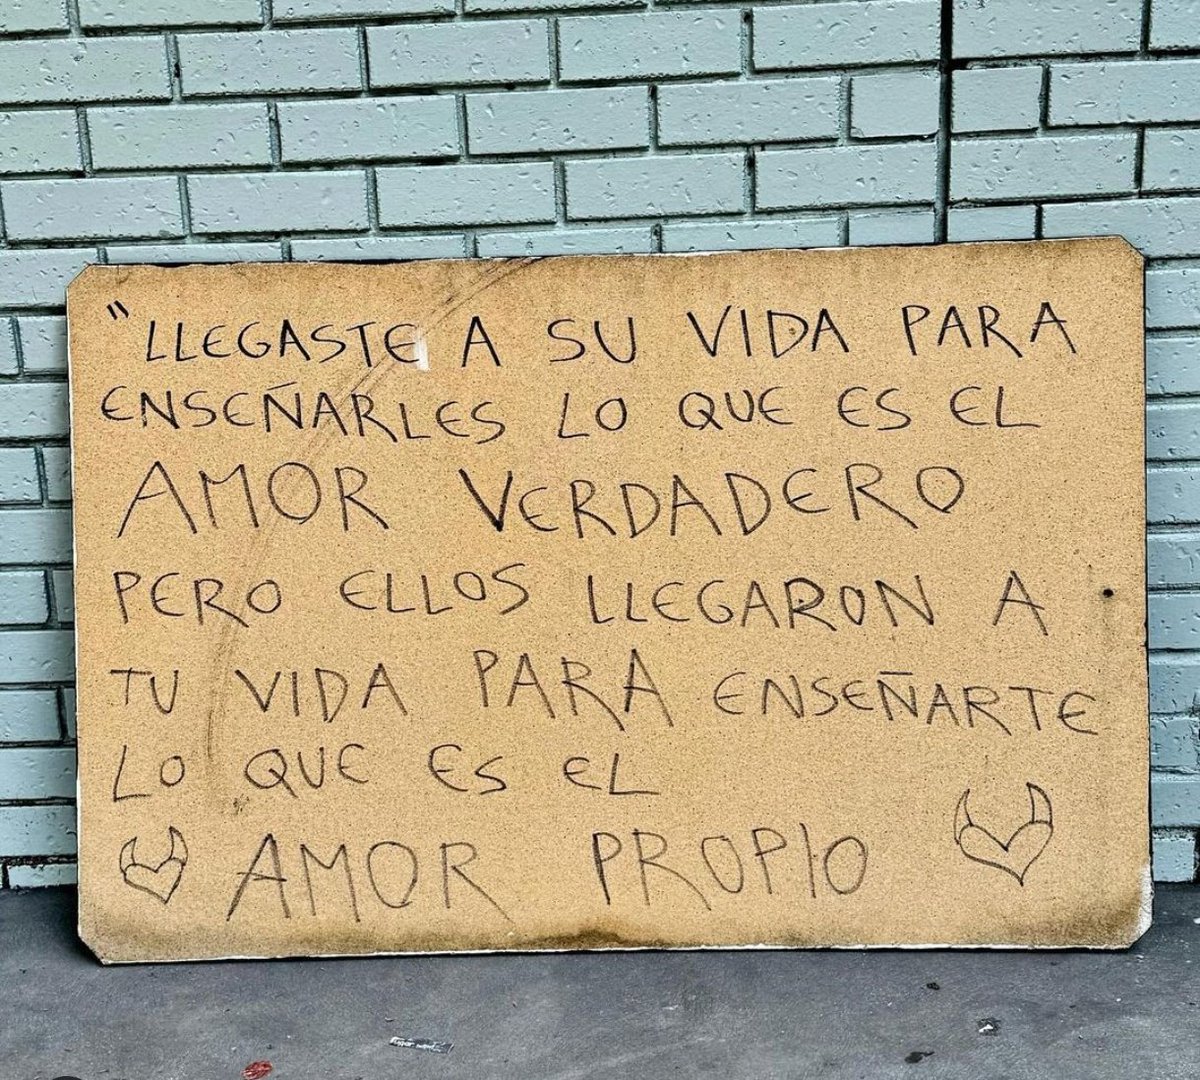 "LLEGASTE A SU VIDA PARA
ENSEÑARLES LO QUE ES EL
AMOR VERDADERO
PERO ELLOS LLEGARON A
TU VIDA PARA ENSEÑARTE
LO QUE ES EL
AMOR PROPIO